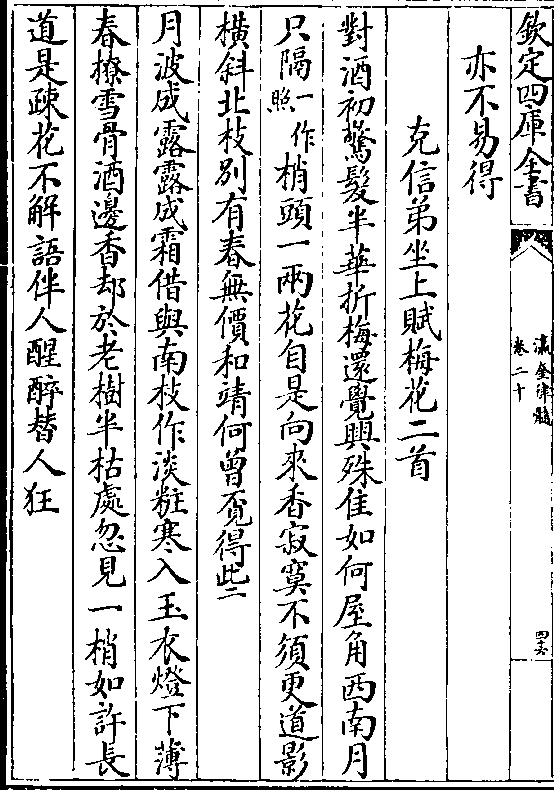 欽定四庫全書
瀛奎律髓
卷二十
四十六
亦不易得
克信弟坐上賦梅花二首
對酒初驚髮半華折梅還覺興殊佳如何屋角西南月
只隔一作照梢頭一兩花自是向來香寂寞不須更道影
橫斜北枝別有春無價和靖何曾覔得些二
月波成露露成霜借與南枝作淡粧寒入玉衣燈下薄
春撩雪骨酒邊香却於老樹半枯處忽見一梢如許長
道是疎花不解語伴人醒醉替人狂